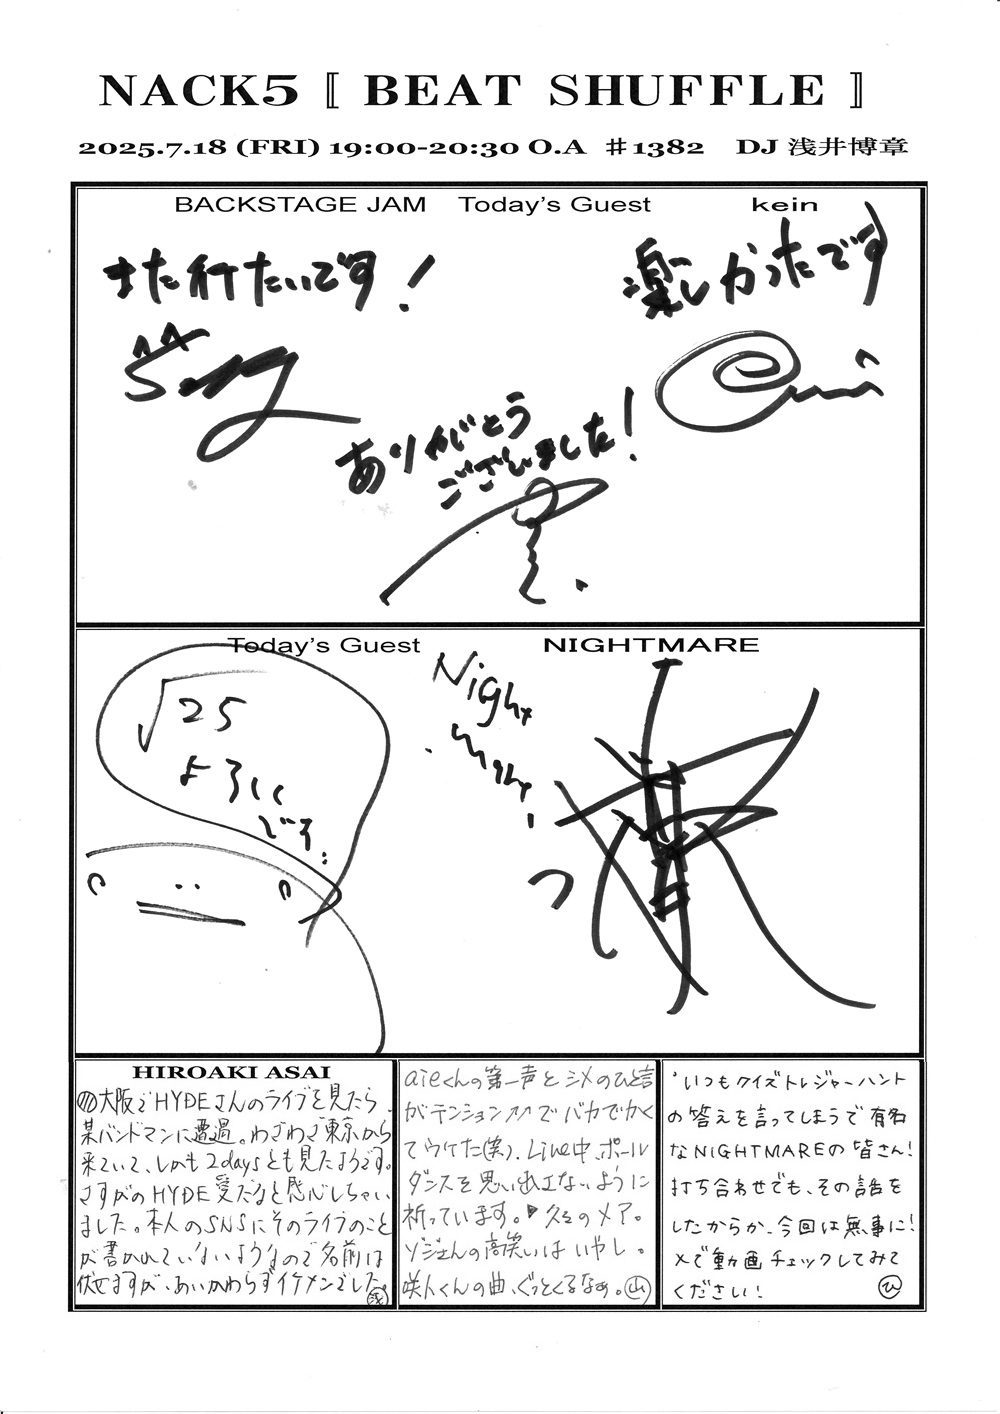 NACK5 〚 BEAT SHUFFLE 〛
2025.7.18 (FRI) 19:00-20:30 O.A ♯1382 DJ 浅井博章
BACKSTAGE JAM Today's Guest kein
また行たいです！
楽しかったです
ありがとう
ございました！
Today's Guest NIGHTMARE
√25
よろしく
どうぞ
Night
mare
HIROAKI ASAI
大阪でHYDEさんのライブを見たら、
某バンドマンに遭遇。わざわざ東京から
来ていて、しかも2daysとも見たようです。
さすがのHYDE愛だなと感心しちゃい
ました。本人のSNSにそのライブのこと
が書かれていないようなので名前は
伏せますが、あいかわらずイケメンでした。浅
aieくんの第一声とシメのひと言
がテンション↗↗でバカでかく
てウケた(笑)。Live中、ポール
ダンスを思い出さないように
祈っています。▶久々のメア。
ゾジーさんの高笑いはいやし。
咲人くんの曲、ぐっとくるなぁ。山
いつもクイズトレジャーハント
の答えを言ってしまうで有名
なNIGHTMAREの皆さん！
打ち合わせでも、その話を
したからか、今回は無事に！
Xで動画チェックしてみて
ください！ ひ